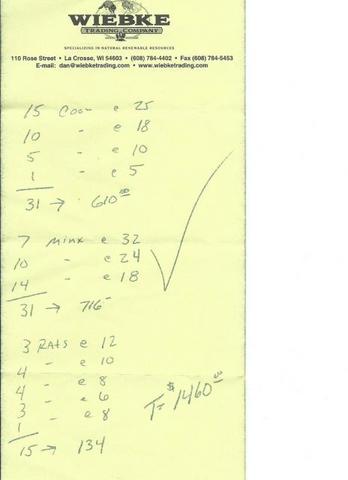 WIEBKE
TRADING COMPANY
SPECIALIZING IN NATURAL RENEWABLE RESOURCES
110 Rose Street • La Crosse, WI 54603 • (608) 784-4402 • Fax (608) 784-5453
E-mail: dan@wiebketrading.com • www.wiebketrading.com
15 Coon @ 25
10 - @ 18
5 - @ 10
1 - @ 5
31 → 610.00
7 Minx @ 32
10 - @ 24
14 - @ 18
31 → 716-
3 RATS @ 12
4 - @ 10
4 - @ 8
3 - @ 6
1 - @ 8
15 → 134
T= $1460.00